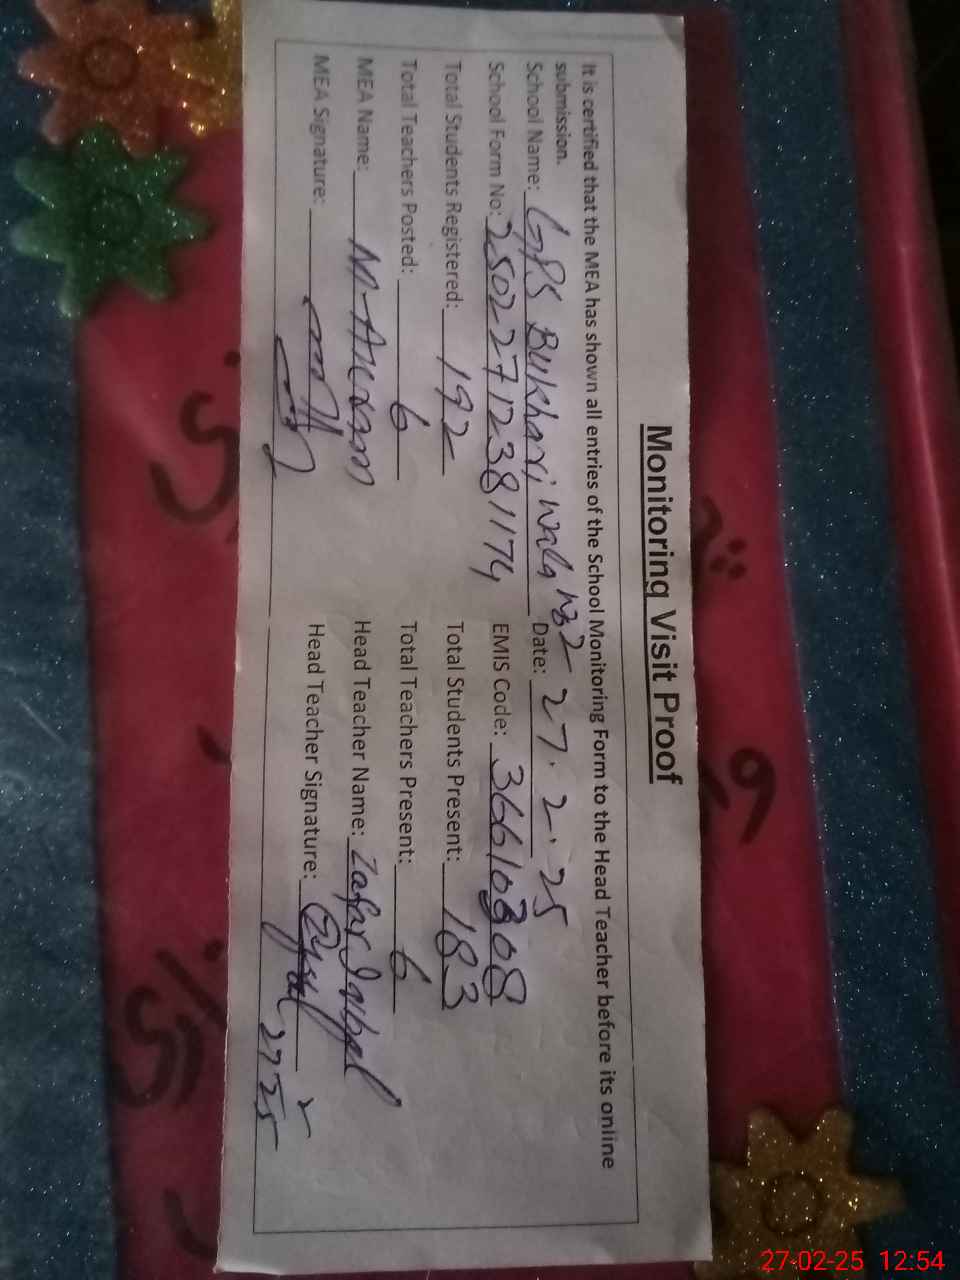 Monitoring Visit Proof
It is certified that the MEA has shown all entries of the School Monitoring Form to the Head Teacher before its online
submission.
School Name: GPS Bukhari wala No2 Date: 27.2.25
School Form No: 25022712381174 EMIS Code: 36610308
Total Students Registered: 192 Total Students Present: 183
Total Teachers Posted: 6 Total Teachers Present: 6
MEA Name: M. Head Teacher Name: Zafar Iqbal
MEA Signature: Head Teacher Signature:
27 2 25
27-02-25 12:54